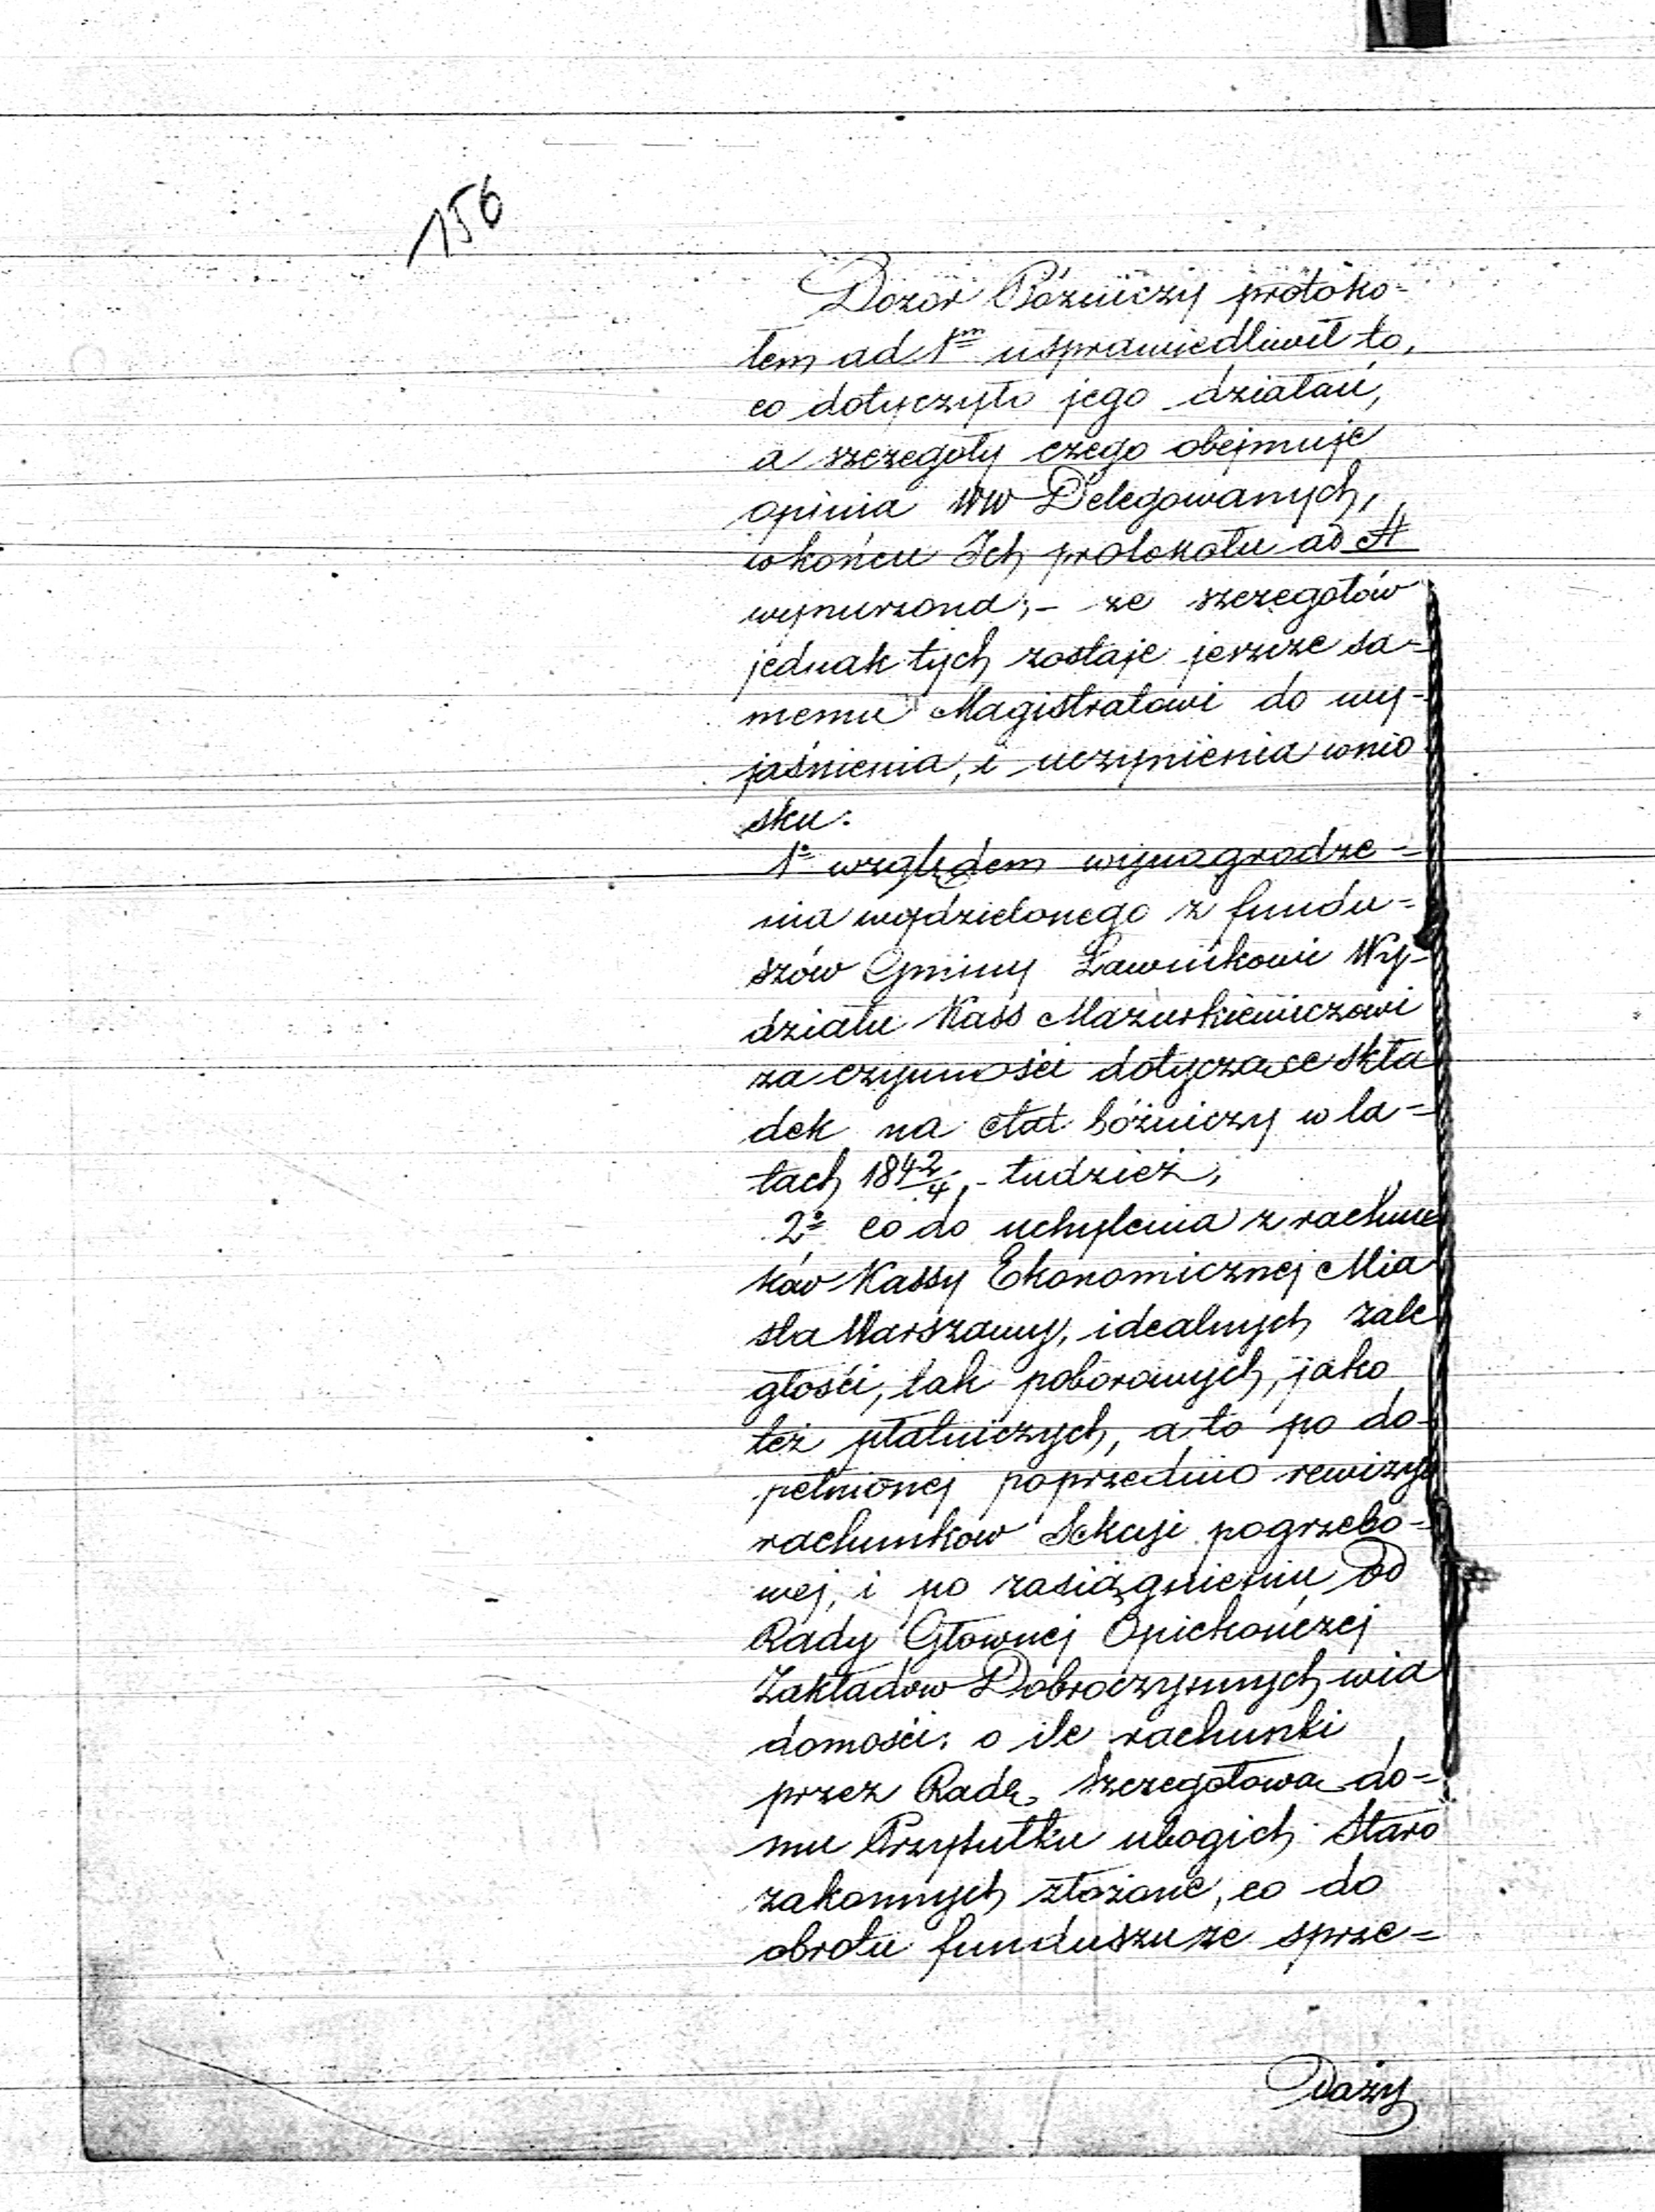 156
Dozór Bóżniczy protoko=
łem ad 1<sup>m</sup> usprawiedliwił to,
co dotyczyło jego działań,
a szczegóły czego obejmuje
opinia WW Delegowanych,
w końcu Ich protokółu ad A
wynurzona; - ze szczegółów
jednak tych zostaje jeszcze sa=
memu Magistratowi do wy-
jaśnienia, i uczynienia wnio
sku:
1º względem wynagrodze=
nia wydzielonego z fundu=
szów Gminy Ławnikowi Wy-
działu Kass Mazurkiewiczowi
za czynności dotyczące skła
dek na etat bóżniczy w la=
tach 184 2/4, - tudzież,
2º co do uchylenia z rachun
ków Kassy Ekonomicznej Mia
sta Warszawy, idealnych zale
głości, tak poborowych, jako
też płatniczych, a to po do-
pełnionej poprzednio rewizyi
rachunków Sekcji pogrzebo=
wej, i po zasiągnieniu Od
Rady Głównej Opiekończej
Zakładów Dobroczynnych wia
domości: o ile rachunki
przez Radę Szczegółową do=
mu Przytułku ubogich Staro
zakonnych złożone, co do
obrotu funduszu ze sprze=
Daży